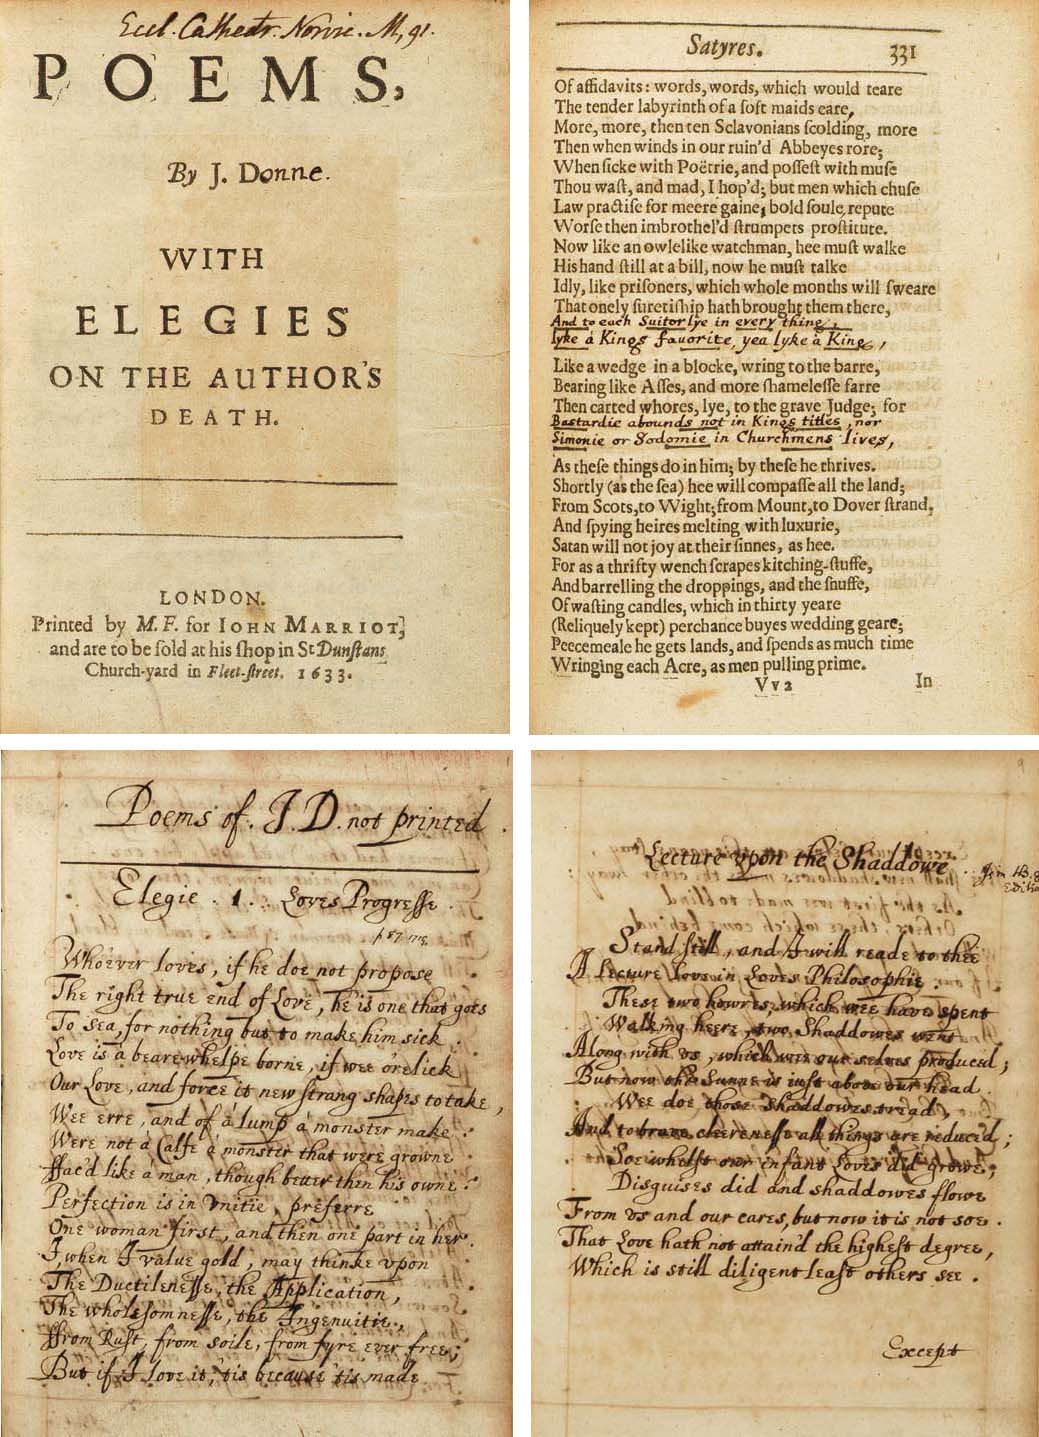 Eccl. Cathedr. Norvic. M, 91.
POEMS,
By J. Donne.
WITH
ELEGIES
ON THE AUTHOR'S
DEATH.
LONDON.
Printed by M. F. for IOHN MARRIOT,
and are to be ſold at his ſhop in St Dunſtans
Church-yard in Fleet-ſtreet. 1633.
Satyres. 331
Of affidavits: words, words, which would teare
The tender labyrinth of a ſoft maids eare,
More, more, then ten Sclavonians ſcolding, more
Then when winds in our ruin'd Abbeyes rore;
When ſicke with Poëtrie, and poſſeſt with muſe
Thou waſt, and mad, I hop'd; but men which chuſe
Law practiſe for meere gaine; bold ſoule repute
Worſe then imbrothel'd ſtrumpets proſtitute.
Now like an owlelike watchman, hee muſt walke
His hand ſtill at a bill, now he muſt talke
Idly, like priſoners, which whole months will ſweare
That onely ſuretiſhip hath brought them there,
And to each Suitor lye in every thing,
lyke à Kings favorite, yea lyke à King,
Like a wedge in a blocke, wring to the barre,
Bearing like Aſſes, and more ſhameleſſe farre
Then carted whores, lye, to the grave Judge; for
Bastardie abounds not in Kings titles, nor
Simonie or Sodomie in Churchmens lives,
As theſe things do in him; by theſe he thrives.
Shortly (as the ſea) hee will compaſſe all the land;
From Scots, to Wight; from Mount, to Dover ſtrand,
And ſpying heires melting with luxurie,
Satan will not joy at their ſinnes, as hee.
For as a thrifty wench ſcrapes kitching-ſtuffe,
And barrelling the droppings, and the ſnuffe,
Of waſting candles, which in thirty yeare
(Reliquely kept) perchance buyes wedding geare;
Peecemeale he gets lands, and ſpends as much time
Wringing each Acre, as men pulling prime.
Vv2 In
Poems of. J. D. not printed.
Elegie. 1. Loves Progreſſe.
Whoever loves, if he doe not propose
The right true end of Love, he is one that goes
To sea, for nothing but to make him sick:
Love is à beare-whelpe borne, if wee o'relick
Our Love, and force it new strang shapes to take,
Wee erre, and of à lump à monster make.
Were not à Calfe à monster that were growne
ffac'd like à man, though better then his owne?
Perfection is in Vnitie, preferre
One woman first, and then one part in her.
I, when I value gold, may thinke vpon
The Ductileneſſe, the Application,
The wholesomneſſe, the Ingenuitie,
ffrom Rust, from soile, from fyre ever free;
But if I love it, 'tis because 'tis made
Lecture vpon the Shaddowe.
Stand still, and I will reade to thee
A Lecture Love in Loves Philosophie.
These two howres, which wee have spent
Walking heere, two Shaddowes went
Along with vs, which wee our selves produced;
But now the Sunne is iust above our head
Wee doe those Shaddowes tread,
And to brave cleereneſſe all things are reduc'd;
Soe whilst our infant Loves did growe,
Disguises did and shaddowes flowe
From vs and our cares, but now it is not soe.
That Love hath not attain'd the highest degree,
Which is still diligent least others see.
Except